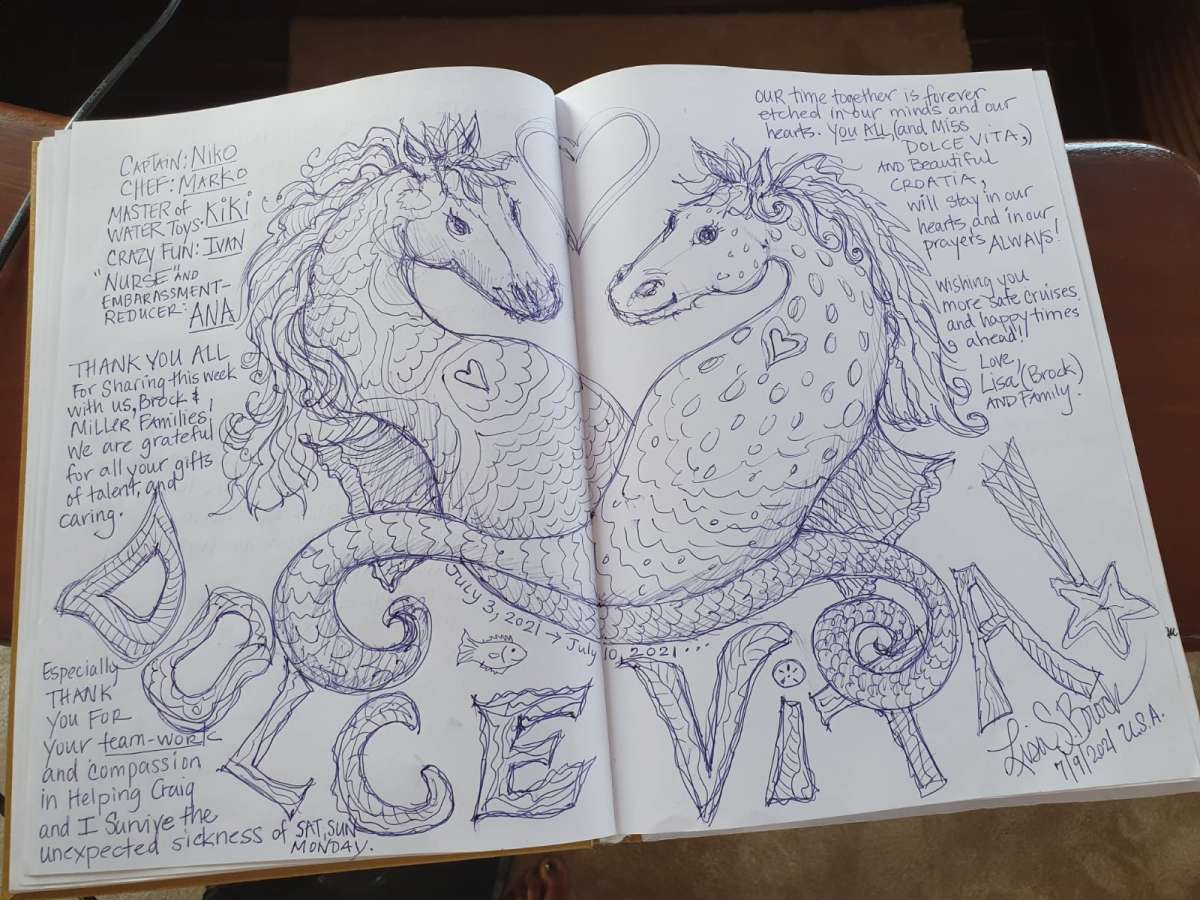 CAPTAIN: NIKO
CHEF: MARKO
MASTER of
WATER TOYS: KiKi
CRAZY FUN: IVAN
"NURSE" AND
EMBARASSMENT-
REDUCER: ANA
THANK YOU ALL
For Sharing this week
with us, Brock &
MILLER Families,
We are grateful
for all your gifts
of talent, and
caring.
Especially
THANK
YOU FOR
your team-work
and compassion
in Helping Craig
and I Survive the
unexpected sickness of SAT, SUN
MONDAY.
OUR time together is forever
etched in our minds and our
hearts. You ALL, (and Miss
DOLCE VITA,)
AND Beautiful
CROATIA,
will stay in our
hearts and in our
prayers ALWAYS!
Wishing you
more safe cruises
and happy times
ahead!!
Love,
Lisa (Brock)
AND Family!
July 3, 2021 → July 10, 2021...
DOLCE ViTA
Lisa S. Brock
7/9/2021 U.S.A.